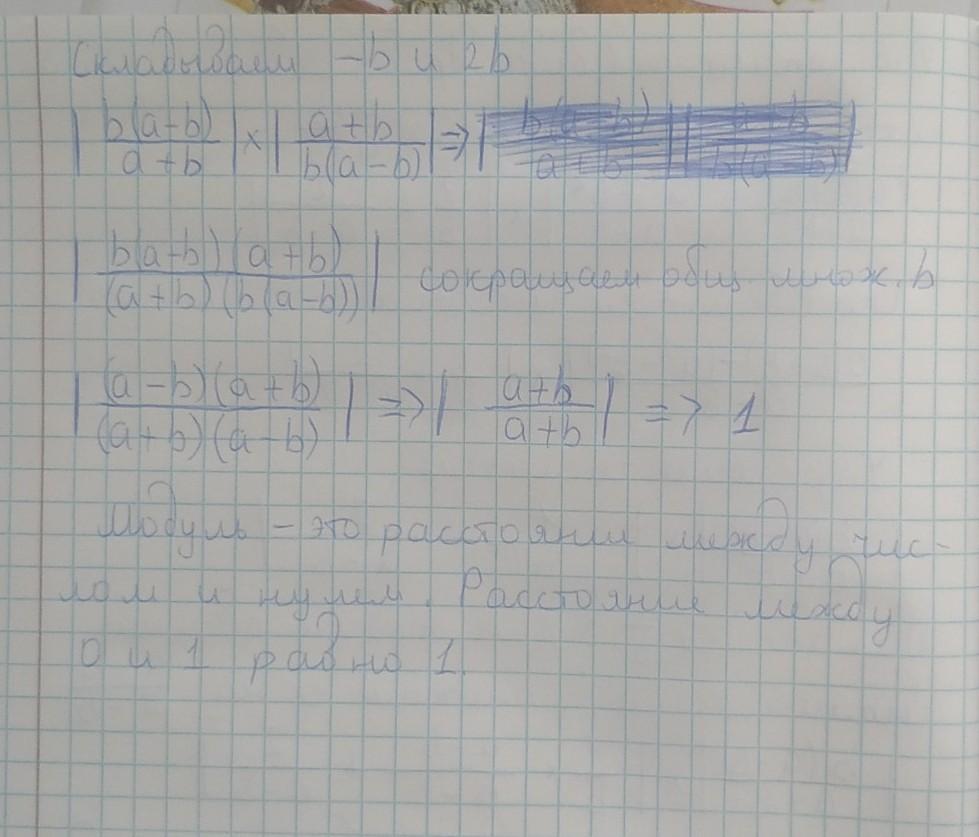 Складываем -b и 2b
| b(a-b) / a+b | × | a+b / b(a-b) | ⇒ |
| b(a-b)(a+b) / (a+b)(b(a-b)) | сокращаем общ множ. b
| (a-b)(a+b) / (a+b)(a-b) | => | a+b / a+b | => 1
Модуль - это расстояние между чис-
лом и нулем. Расстояние между
0 и 1 равно 1.